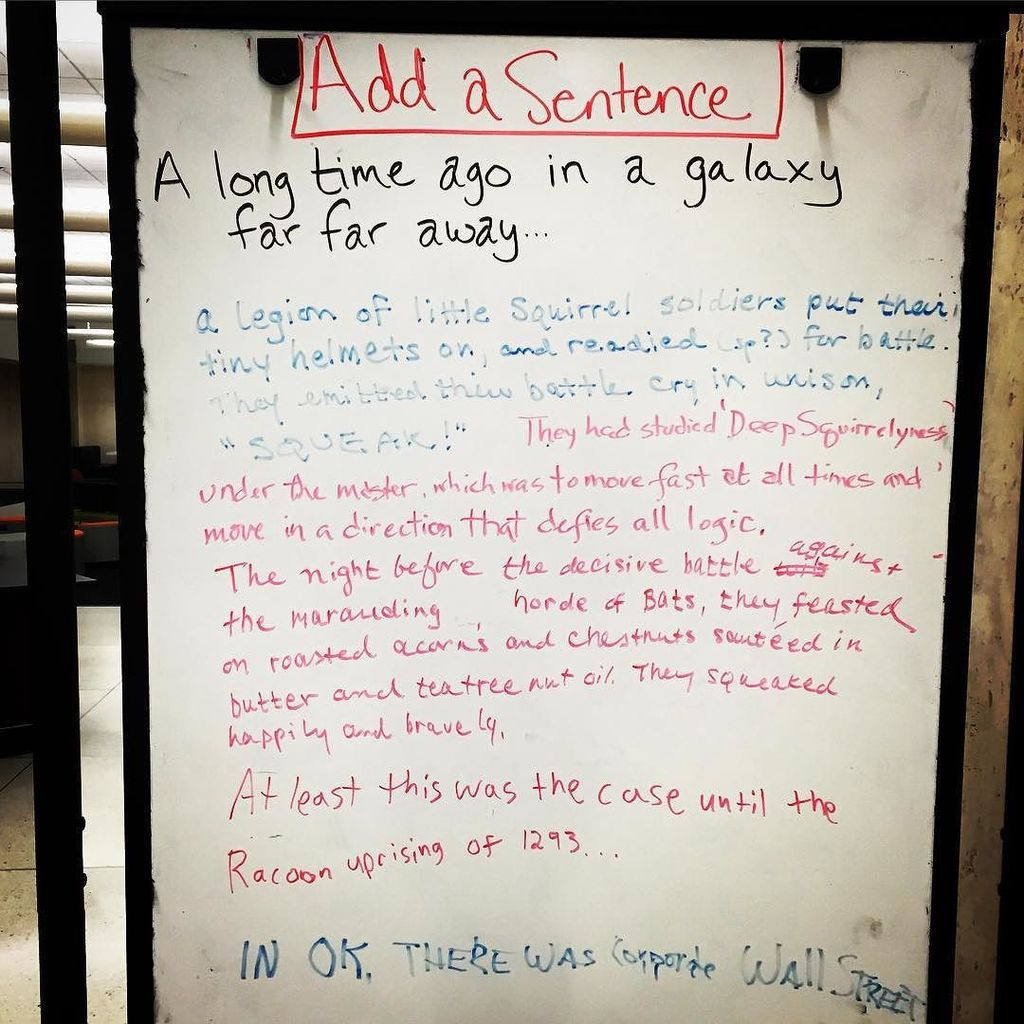 Add a Sentence
A long time ago in a galaxy
far far away...
a legion of little Squirrel soldiers put their
tiny helmets on, and readied (sp?) for battle.
They emitted their battle cry in unison,
"SQUEAK!" They had studied 'Deep Squirrelyness'
under the master, which was to move fast at all times and
move in a direction that defies all logic.
The night before the decisive battle against
the marauding horde of Bats, they feasted
on roasted acorns and chestnuts sautéed in
butter and teatree nut oil. They squeaked
happily and bravely.
At least this was the case until the
Racoon uprising of 1293...
IN OK, THERE WAS Corporate Wall STREET